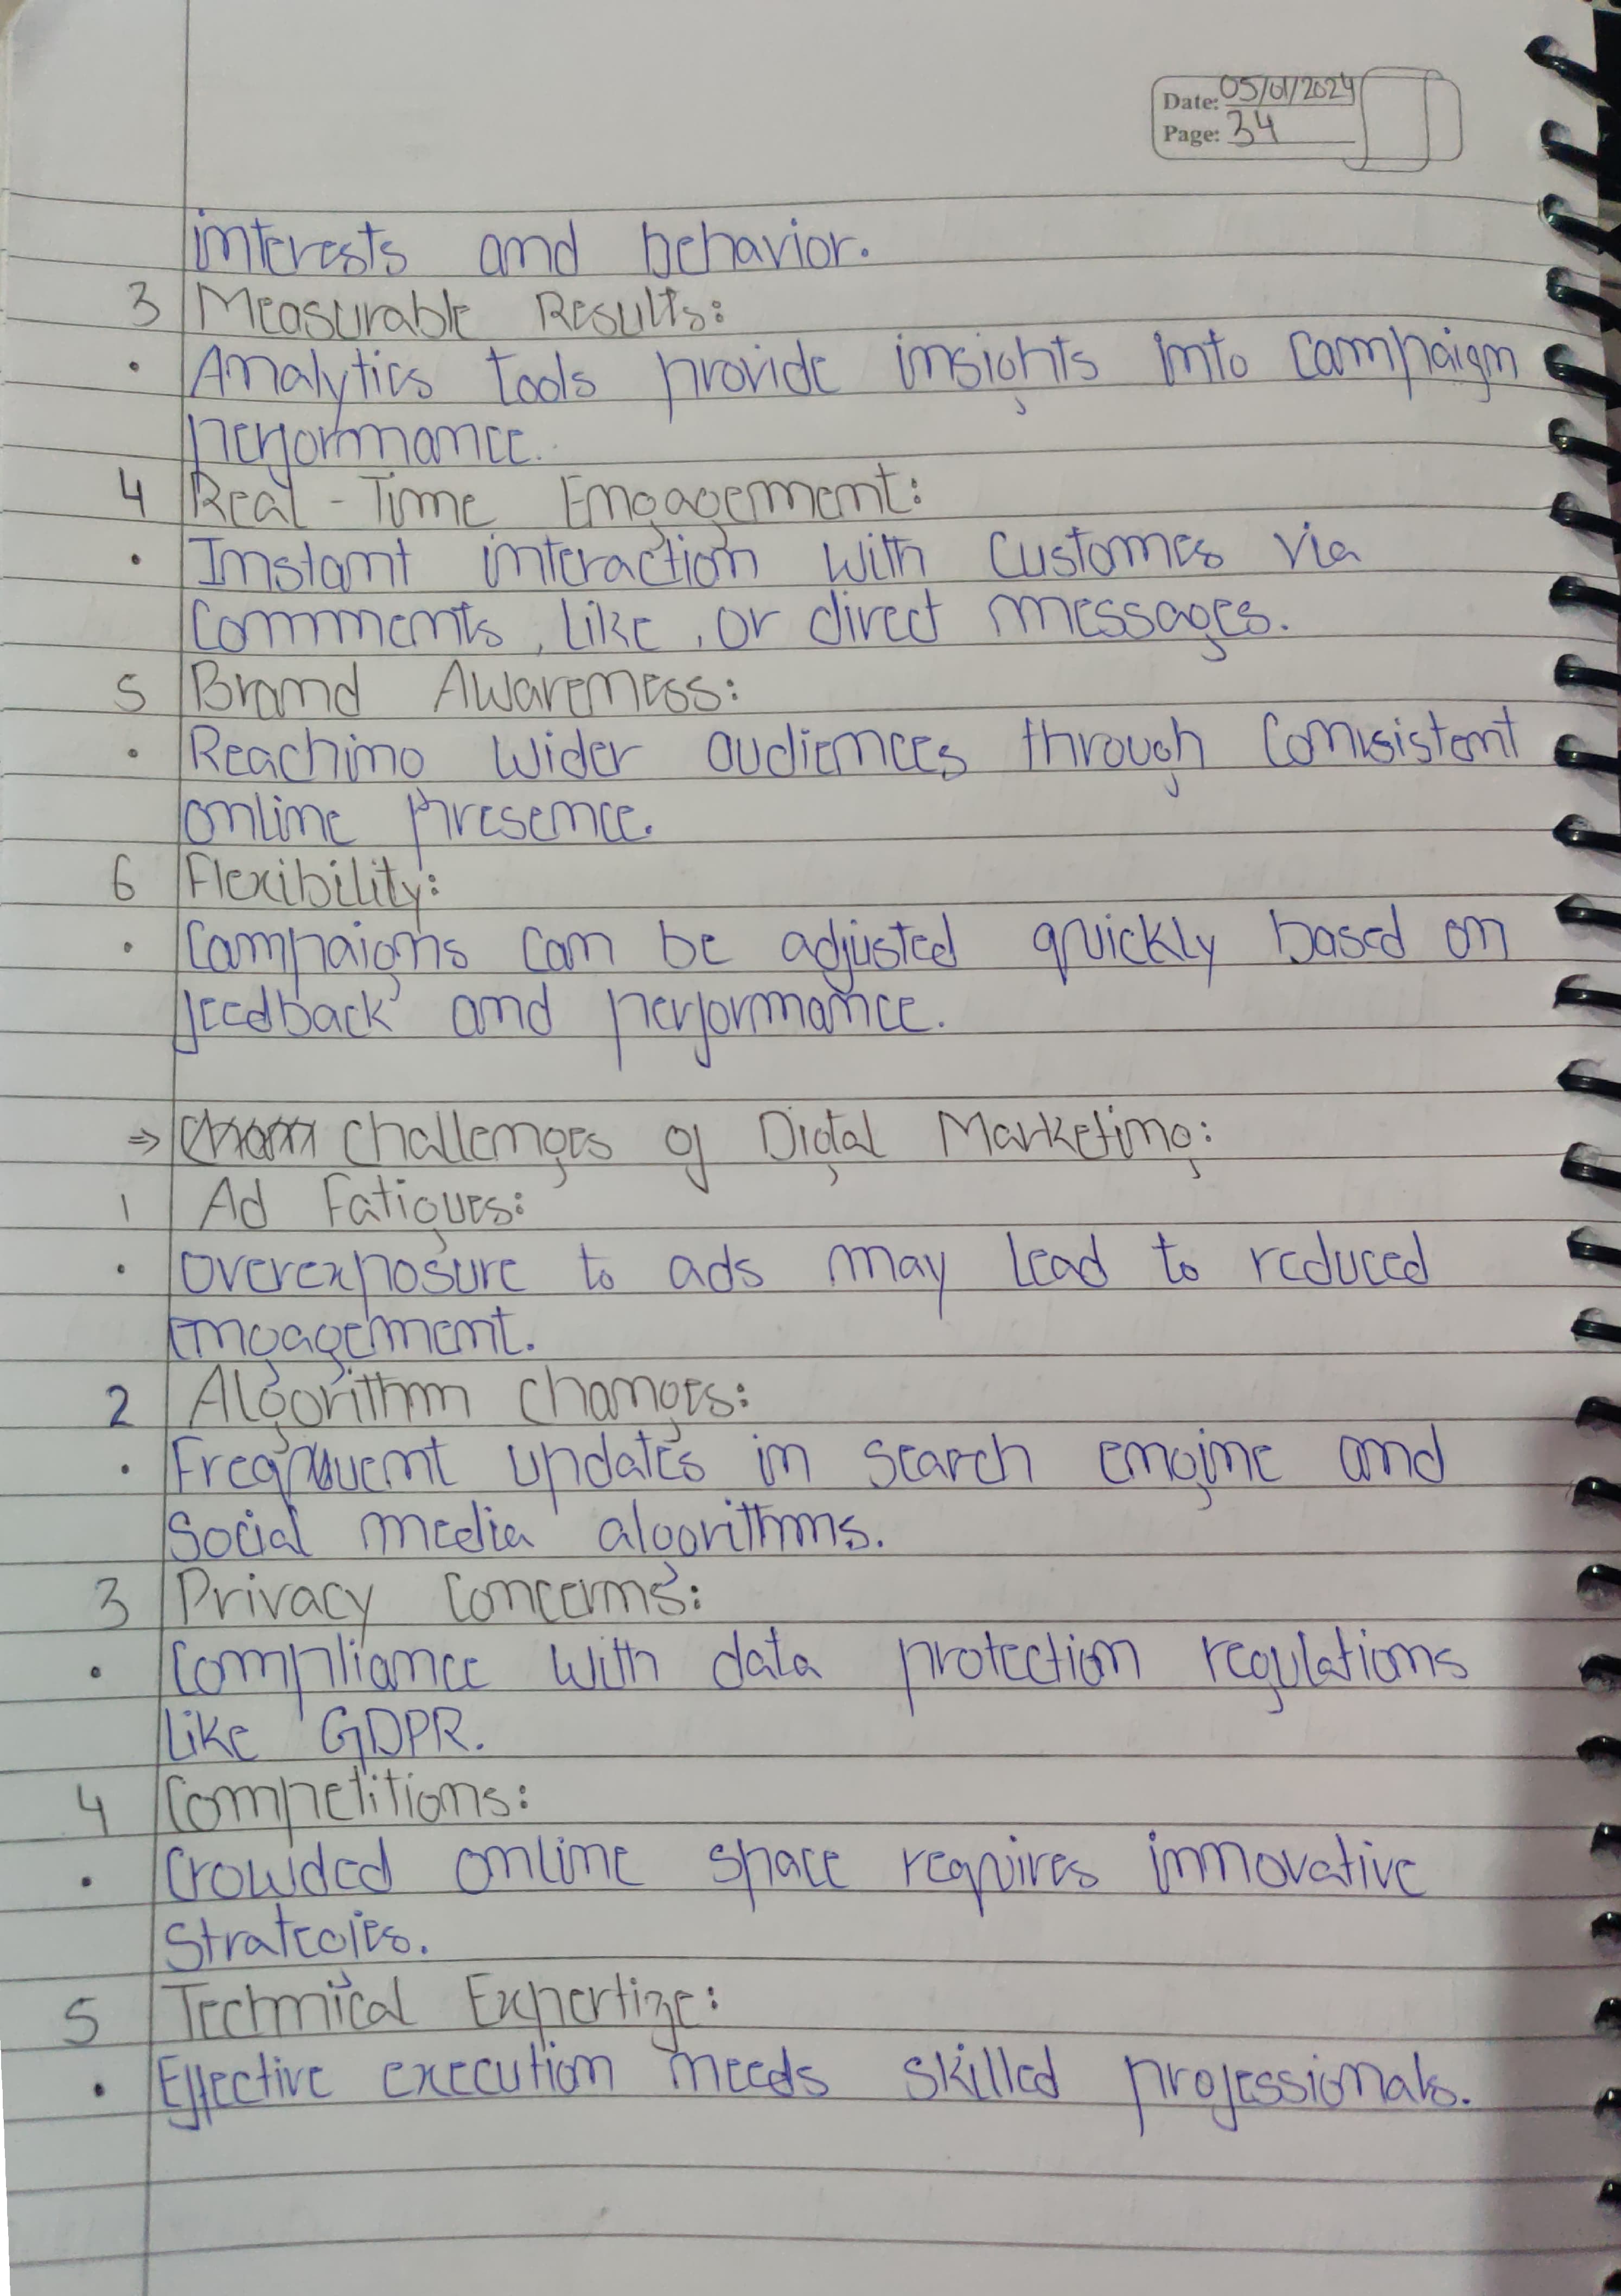 Date: 05/01/2024
Page: 34
interests and behavior.
3 Measurable Results:
• Analytics tools provide insights into campaign
performance.
4 Real-Time Engagement:
• Instant interaction with customes via
comments, like, or direct messages.
5 Brand Awareness:
• Reaching wider audiences through consistent
online presence.
6 Flexibility:
• Campaigns can be adjusted quickly based on
feedback and performance.
⇒ Challenges of Digtal Marketing:
1 Ad Fatigues:
• overexposure to ads may lead to reduced
engagement.
2 Algorithm changes:
• Frequent updates in search engine and
social media algorithms.
3 Privacy Concerns:
• Compliance with data protection regulations
like GDPR.
4 Competitions:
• Crowded online space requires innovative
strategies.
5 Technical Expertize:
• Effective execution needs skilled professionals.